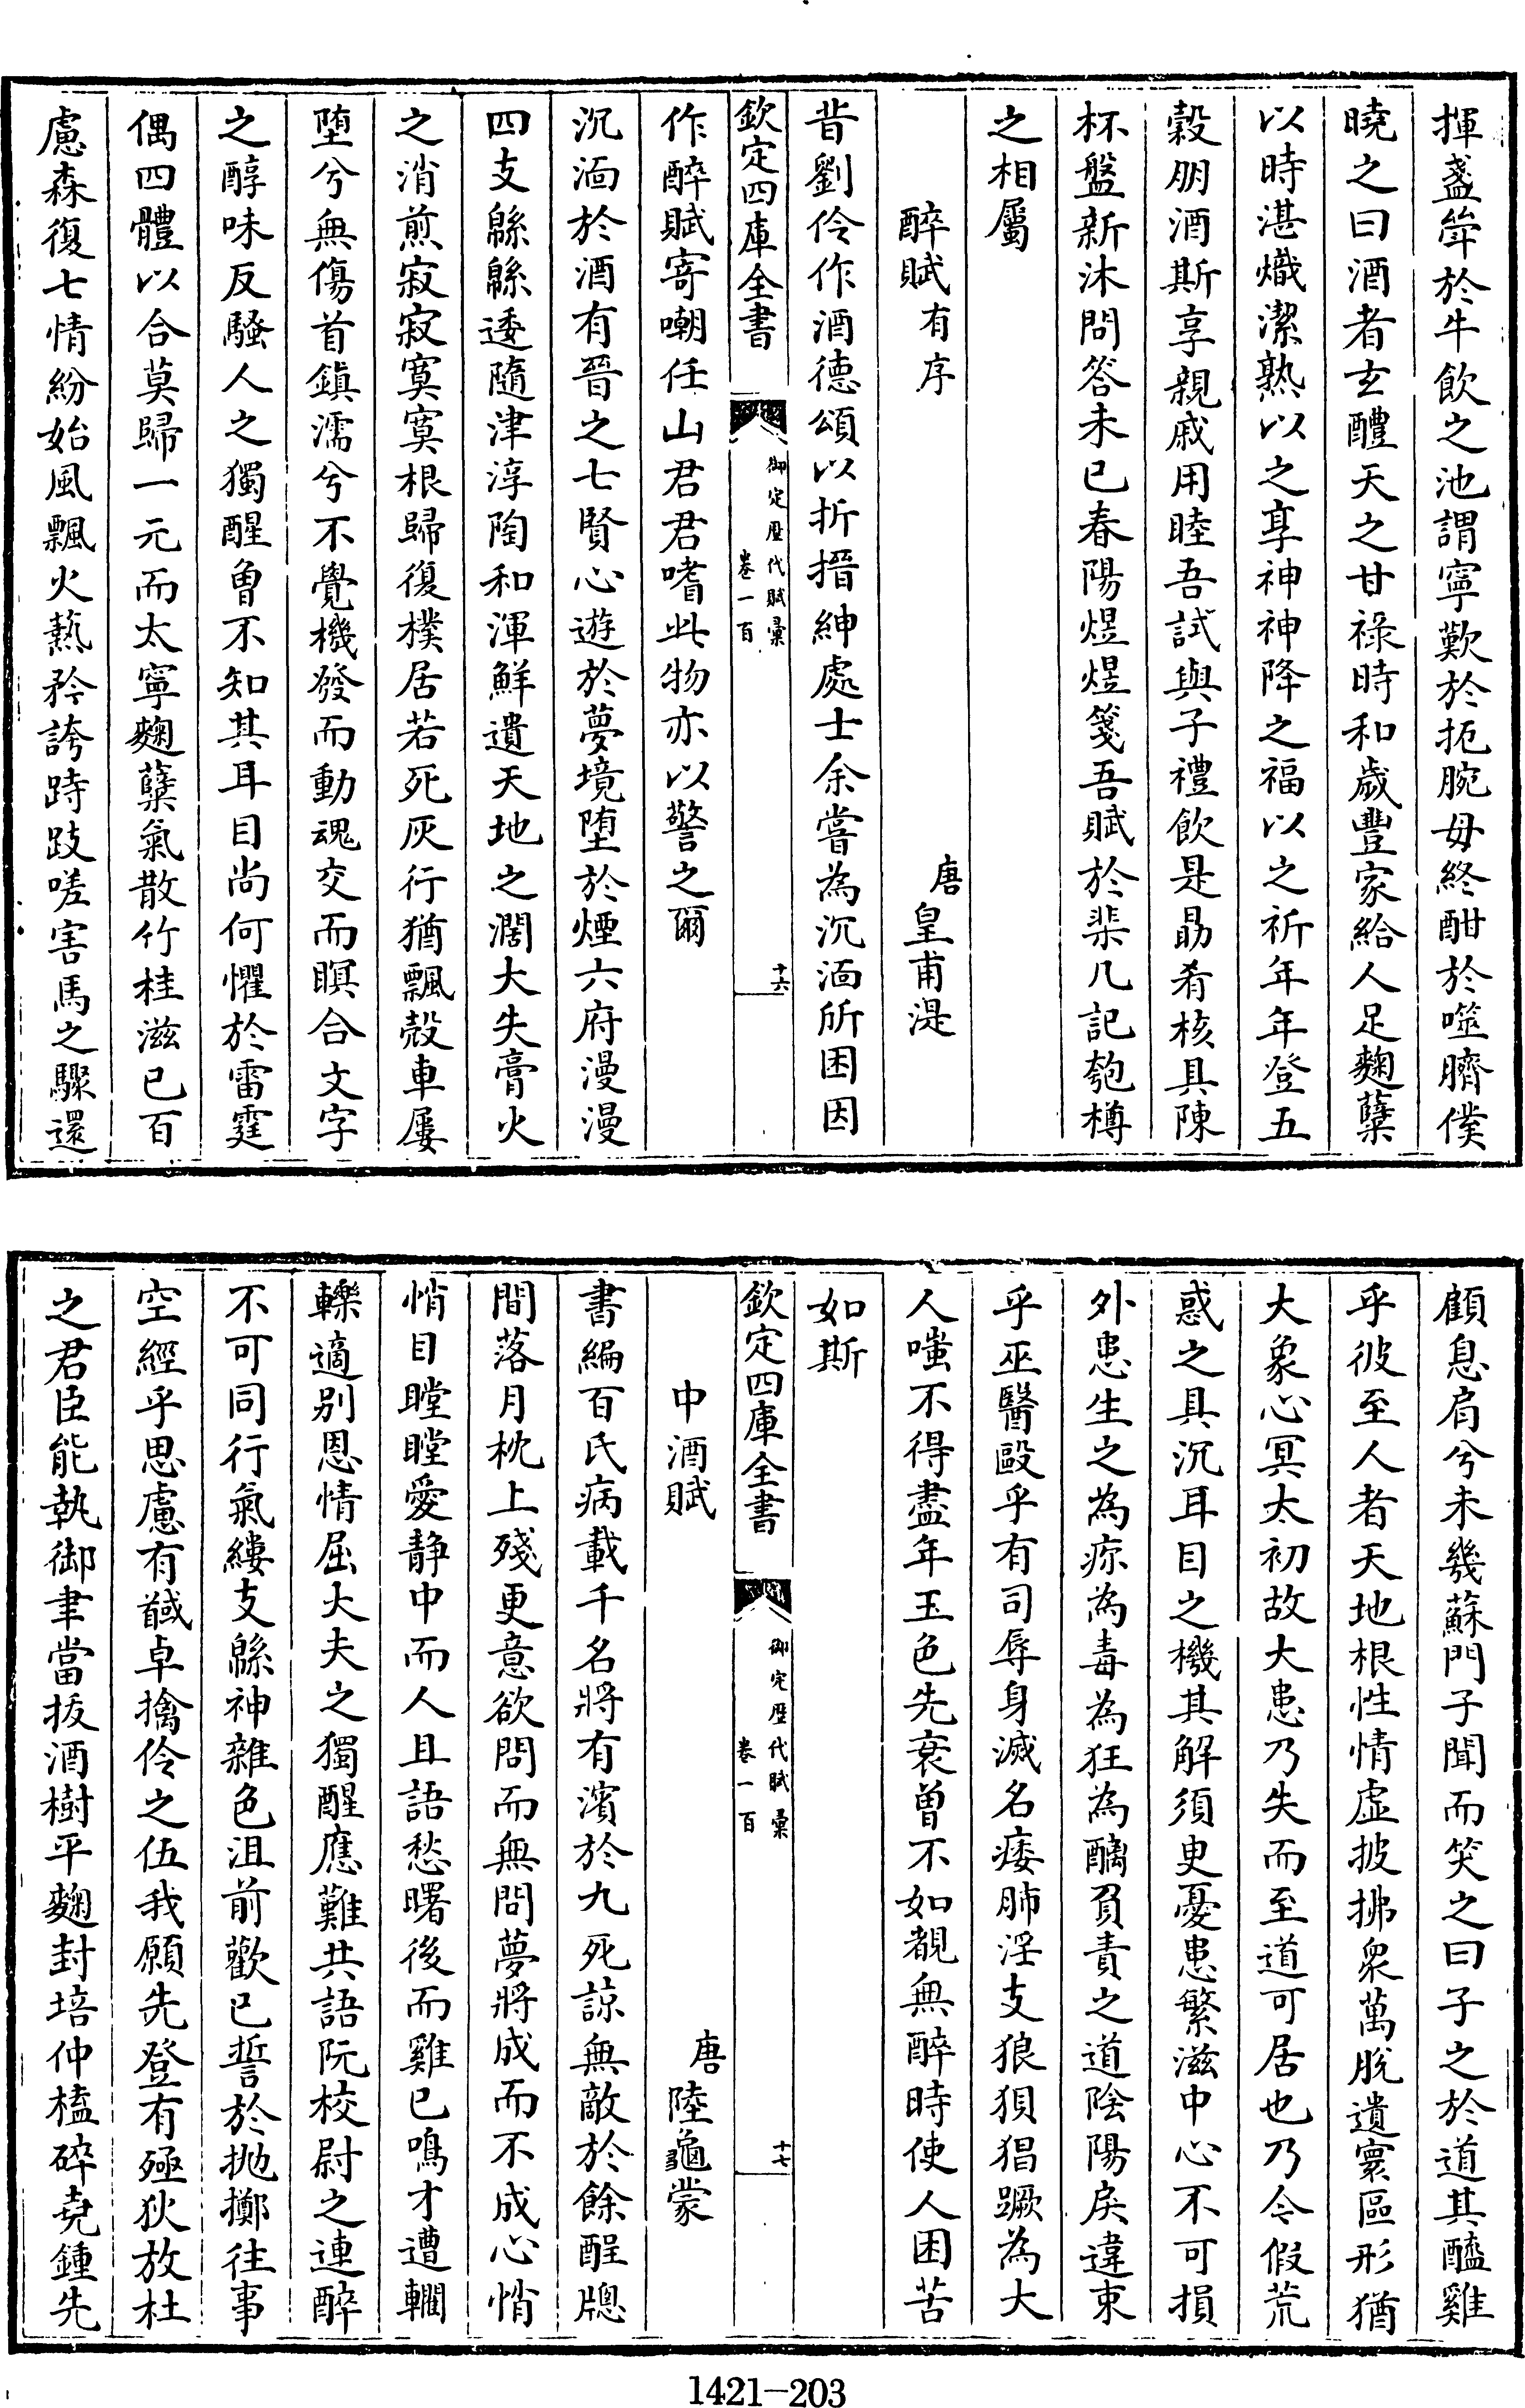 揮盞犖於牛飲之池謂寧歎於扼腕毋終酣於噬臍僕
曉之曰酒者玄醴天之甘祿時和歲豐家給人足麴糵
以時湛熾潔熟以之享神神降之福以之祈年年登五
穀朋酒斯享親戚用睦吾試與子禮飲是勗肴核具陳
杯盤新沐問答未已春陽煜煜箋吾賦於棐几記匏樽
之相屬
醉賦有序
唐皇甫湜
昔劉伶作酒德頌以折搢紳處士余嘗為沉湎所困因
欽定四庫全書
御定歷代賦彙
卷一百
十六
作醉賦寄嘲任山君君嗜此物亦以警之爾
沉湎於酒有晉之七賢心遊於夢境堕於煙六府漫漫
四支緜緜逶隨津淳陶和渾鮮遺天地之濶大失膏火
之消煎寂寂寞寞根歸復樸居若死灰行猶飄殼車屢
堕兮無傷首鎮濡兮不覺機發而動魂交而瞑合文字
之醇味反騷人之獨醒曾不知其耳目尚何懼於雷霆
偶四體以合莫歸一元而太寧麴糵氣散竹桂滋已百
慮森復七情紛始風飄火熱矜誇跱跂嗟害馬之驟還
顧息肩兮未幾蘇門子聞而笑之曰子之於道其醯雞
乎彼至人者天地根性情虛披拂衆萬脫遺寰區形猶
大象心冥太初故大患乃失而至道可居也乃令假荒
惑之具沉耳目之機其解須臾憂患繁滋中心不可損
外患生之為疢為毒為狂為酗負責之道陰陽戾違束
乎巫醫毆乎有司辱身滅名痿肺淫支狼狽猖蹶為大
人嗤不得盡年玉色先衰曾不如覩無醉時使人困苦
如斯
欽定四庫全書
御定歷代賦彙
卷一百
十七
中酒賦
唐陸龜蒙
書編百氏病載千名將有濱於九死諒無敵於餘酲牎
間落月枕上殘更意欲問而無問夢將成而不成心悄
悄目瞠瞠愛静中而人且語愁曙後而雞已鳴才遭轥
轢適别恩情屈大夫之獨醒應難共語阮校尉之連醉
不可同行氣縷支緜神雜色沮前歡已誓於抛擲往事
空經乎思慮有馘卓擒伶之伍我願先登有殛狄放杜
之君臣能執御聿當拔酒樹平麴封培仲榼碎堯鍾先
1421-203